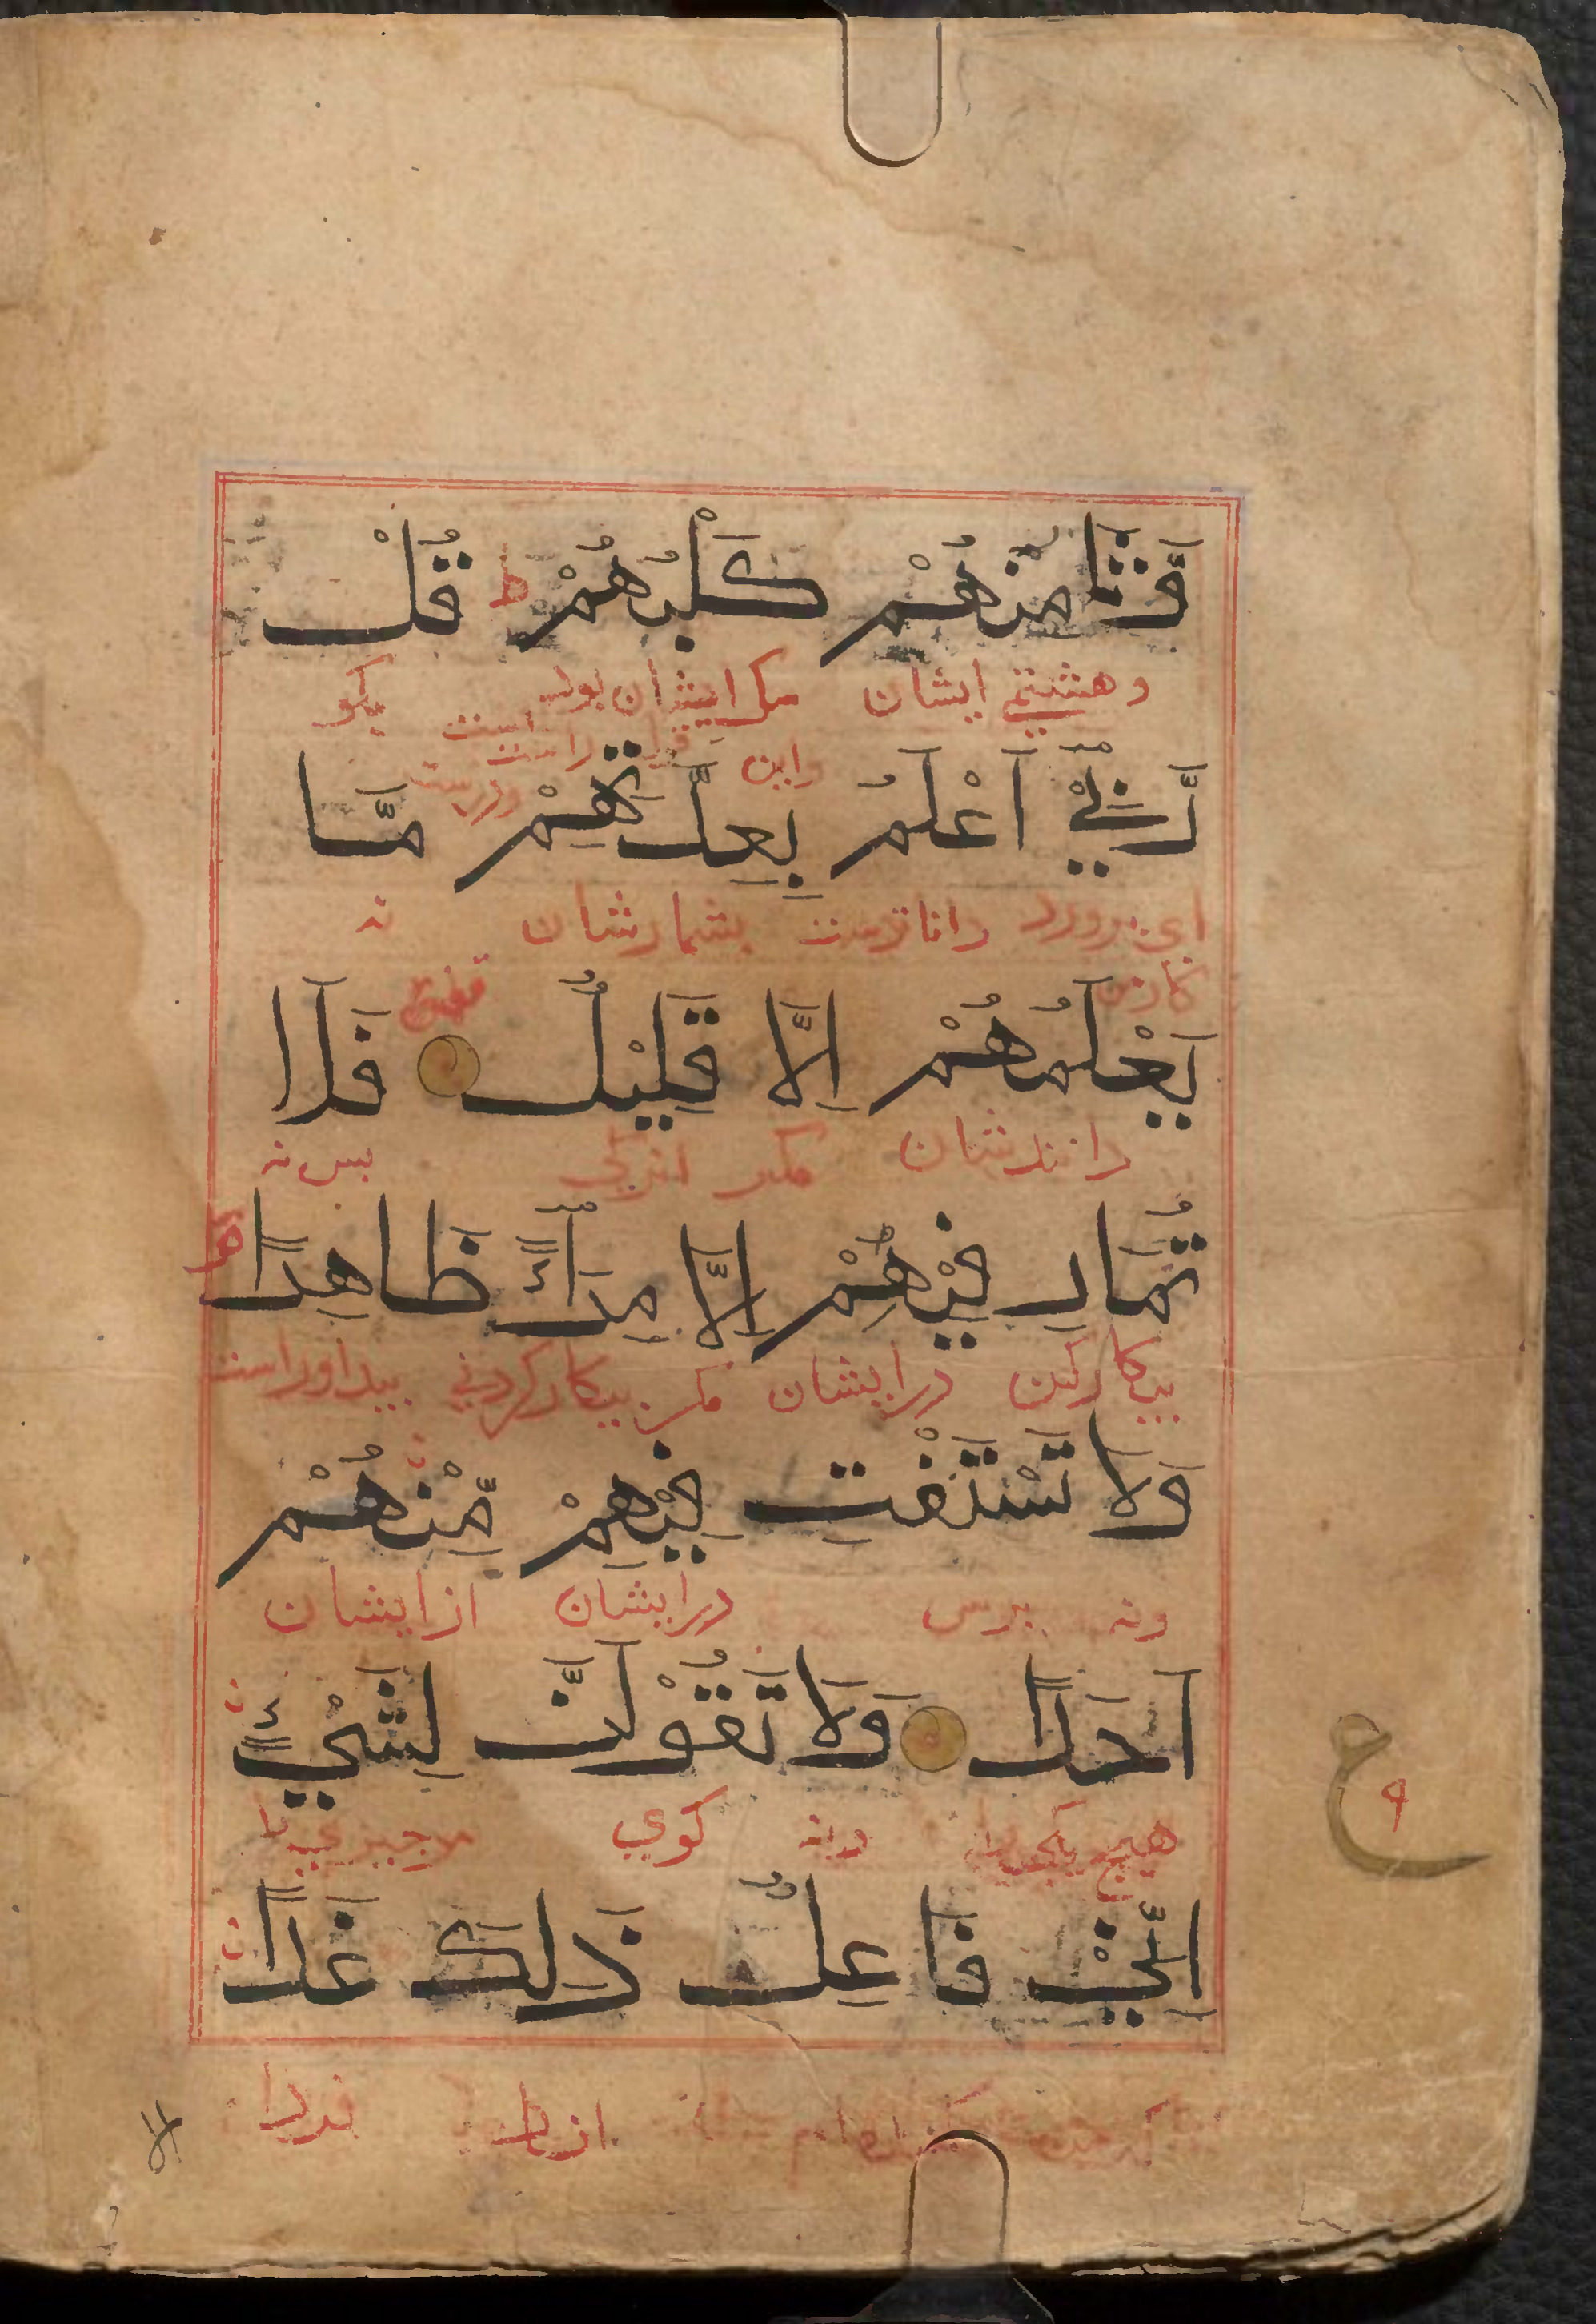 وَّثَامِنُهُمْ كَلْبُهُمْ ط قُلْ
وهشتمی ایشان سک ایشان بود بکو
واین قول راست است ودرست
رَّبِّيْ اَعْلَمُ بِعِدَّتِهِمْ مَّا
ای پرورد داناترست بشمارشان نه
کار من
يَعْلَمُهُمْ اِلَّا قَلِيْلٌ فَلَا
دانندشان مکر اندکی بس نه
تُمَارِ فِيْهِمْ اِلَّا مِرَآءً ظَاهِرًا
بیکار کن درایشان مکر بیکار کردنی
وَلَا تَسْتَفْتِ فِيْهِمْ مِّنْهُمْ
ونه برس درایشان ازایشان
اَحَدًا وَلَا تَقُوْلَنَّ لِشَيْءٍ
هیچ یکی را ونه کوی مر جیزی را
اِنِّيْ فَاعِلٌ ذٰلِكَ غَدًا
که من کننده ام ازان فردا
ع
۹